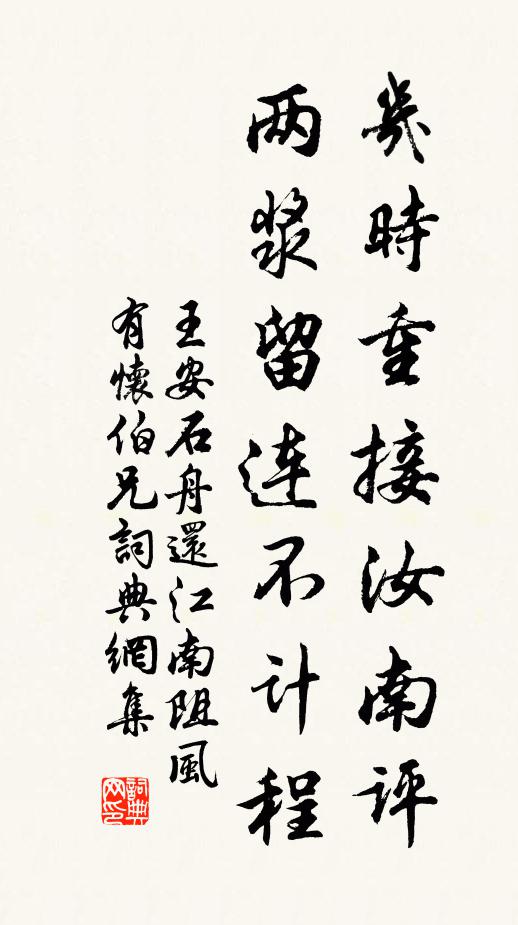 幾時重接汝南評
两漿留連不計程
王安石舟還江南阻風
有懷伯兄詞典網集
詞典
网印